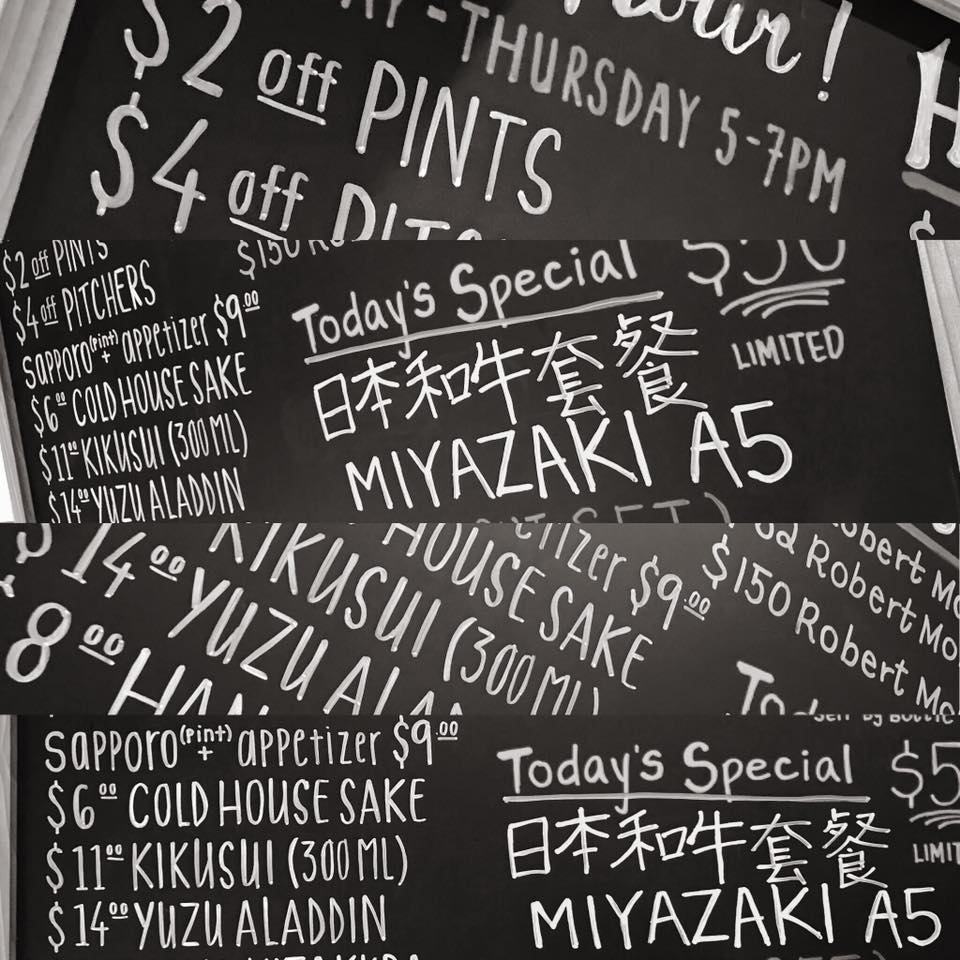 Hour!
- THURSDAY 5-7PM
$2 off PINTS
$4 off
H
$2 off PINTS
$4 off PITCHERS
sapporo (pint) + appetizer $9.00
$6.00 COLD HOUSE SAKE
$11.00 KIKUSUI (300 ML)
$14.00 YUZU ALADDIN
$150
Today's Special
$50
LIMITED
日本和牛套餐
MIYAZAKI A5
SET)
Robert
Robert
$150 Robert
$9.00
HOUSE SAKE
KIKUSUI (300 ML)
14.00 YUZU
8.00
sapporo (pint) + appetizer $9.00
$6.00 COLD HOUSE SAKE
$11.00 KIKUSUI (300 ML)
$14.00 YUZU ALADDIN
Today's Special
$5
日本和牛套餐
MIYAZAKI A5